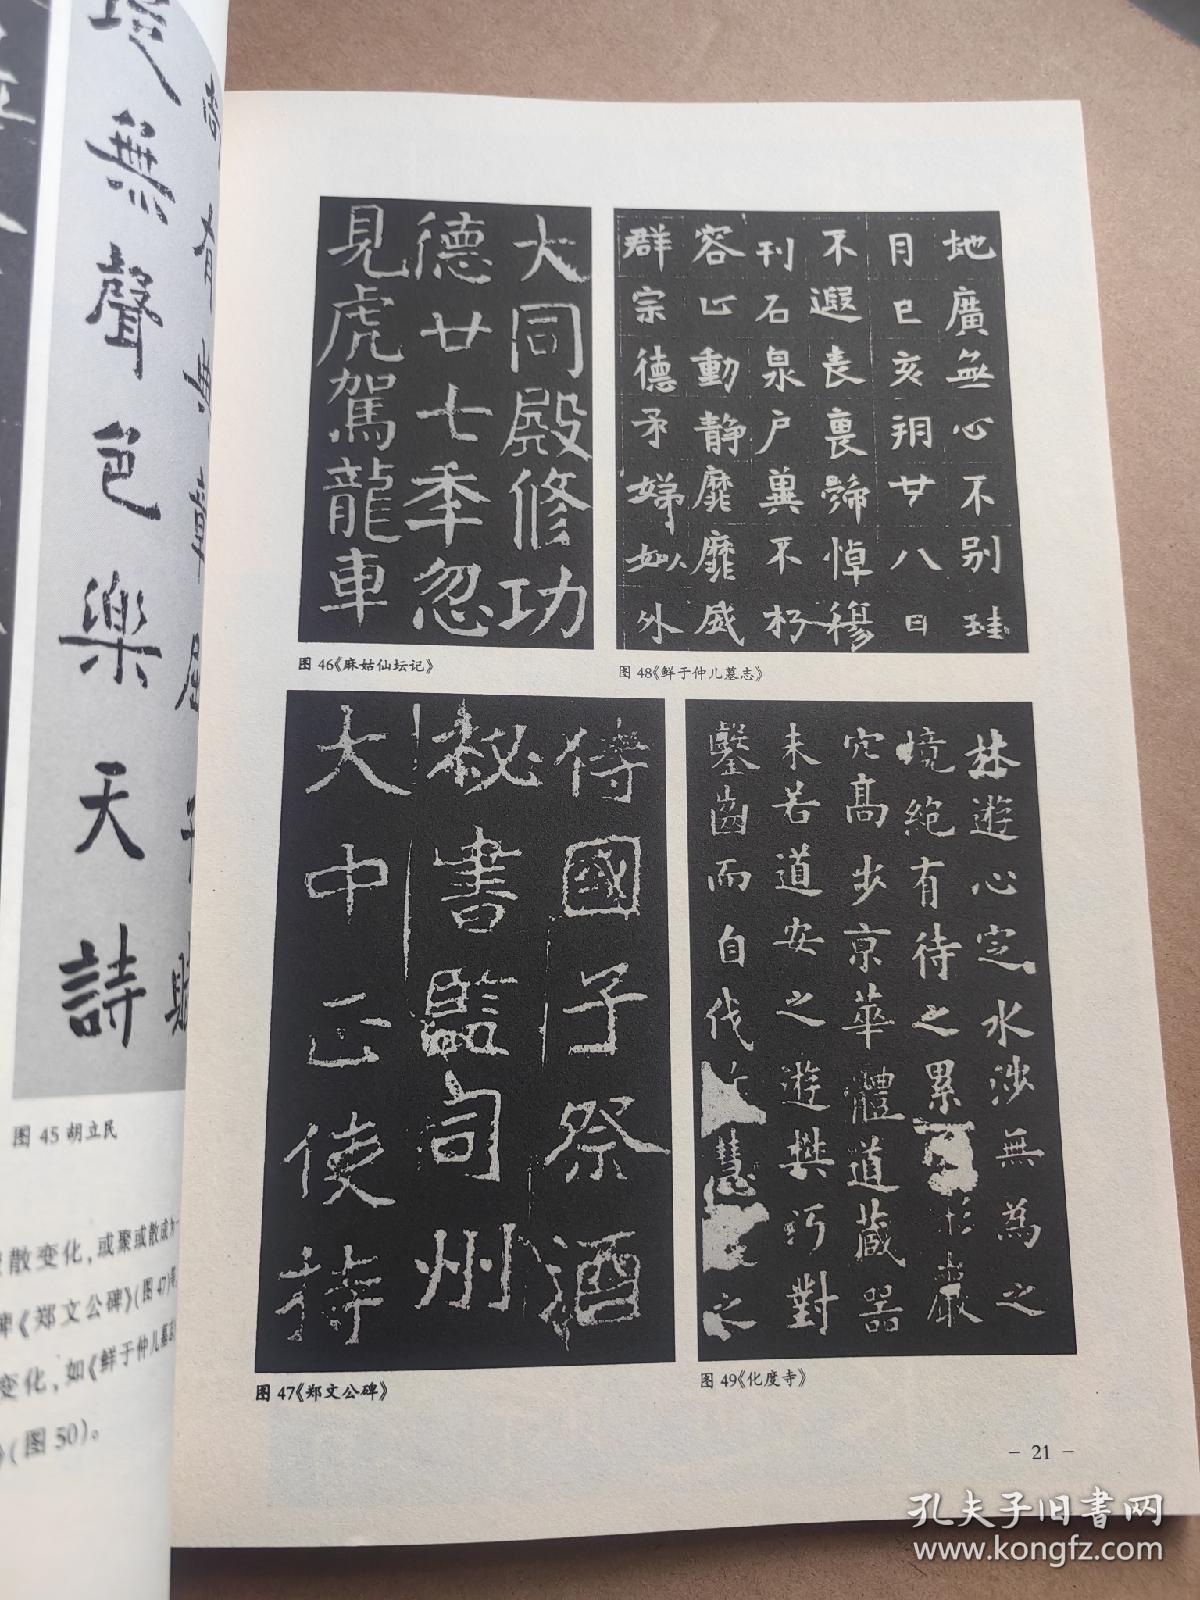 無聲色樂天詩
有典章
图 45 胡立民
散变化，或聚或散成为
碑《郑文公碑》(图47)
变化，如《鲜于仲儿墓志
(图50)。
大同殿修功
德廿七季忽
見虎駕龍車
图 46《麻姑仙坛记》
地廣無心不别
月已亥朔廿八日
不遐喪裏歸悼穆
刊石泉户冀不朽
容止動静靡靡威
群宗德矛娣姒外
图 48《鲜于仲儿墓志》
侍國子祭酒
秘書監司州
大中正使持
图 47《郑文公碑》
林遊心定水涉無為之
境絶有待之累形嚴
穴高步京華體道藏器
未若道安之遊樊沔對
鑿齒而自伐慧之
图 49《化度寺》
- 21 -
孔夫子旧书网
www.kongfz.com